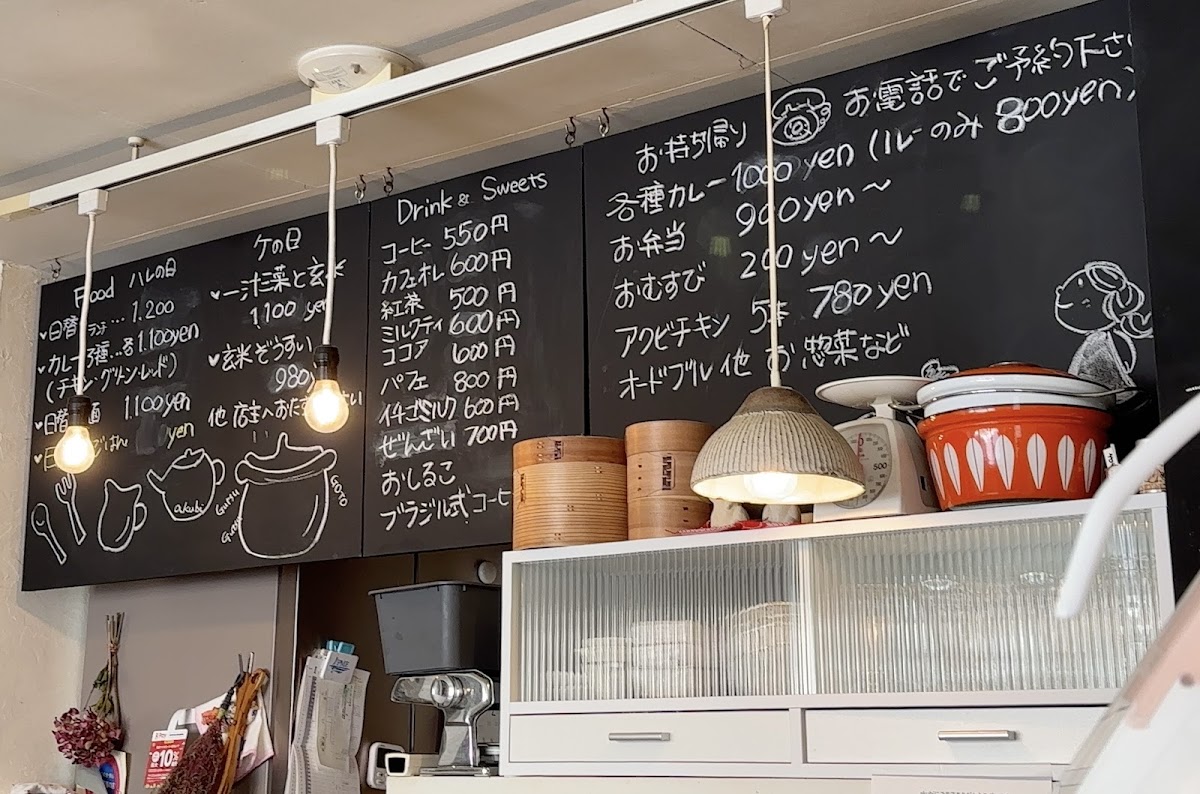 Food ハレの日
♥日替ランチ… 1,200
♥カレー3種…各1.100yen
(チキン・グリーン・レッド)
♥日替 麺 1,100yen
♥日 ごはん yen
akubi
Gutsu
Gutsu
GOTO
ケの日
♥一汁三菜と玄米
1,100 yen
♥玄米ぞうすい
980
他 店主へおた
Drink & Sweets
コーヒー 550円
カフェオレ 600円
紅茶 500円
ミルクティ 600円
ココア 600円
パフェ 800円
イチゴミルク 600円
ぜんざい 700円
おしるこ
ブラジル式コーヒ
お持ち帰り お電話でご予約下さ
各種カレー 1000 yen (ルーのみ 800yen)
お弁当 900yen〜
おむすび 200 yen〜
アクビチキン 5本 780yen
オードブル 他 お惣菜など
500
10%